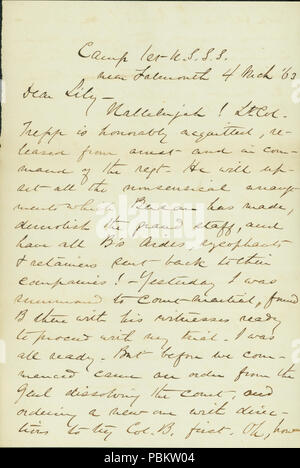 Camp 1st U.S.S.S.
near Falmouth 4 Mch '63
Dear Lily—
Hallelujah! Lt Col.
Trepp is honorably acquitted, re-
leased from arrest and in com-
mand of the regt. He will up-
set all the nonsensical arrange-
ments wh. has made,
demolish the grand staff, and
have all B's Aides, sycophants
& retainers sent back to their
companies! — Yesterday I was
summoned to Court-martial, found
B there with his witnesses ready
to proceed with my trial. I was
all ready. But before we com-
menced came an order from the
Genl dissolving the court, and
ordering a new one with direc-
tions to try Col. B. first. Oh, how
alamy
alamy
Image ID: PBKW04
www.alamy.com